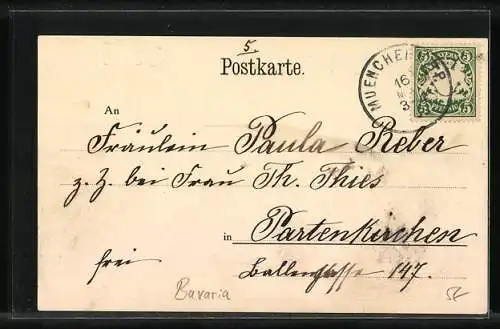 5.
Postkarte.
MUENCHEN
16
3
BAYERN
5 5
PFENNIG
5 5
An
Fräulein Paula Reber
z. Z. bei Frau Th. Thies
in Partenkirchen
frei
Ballengasse 147.
Bavaria